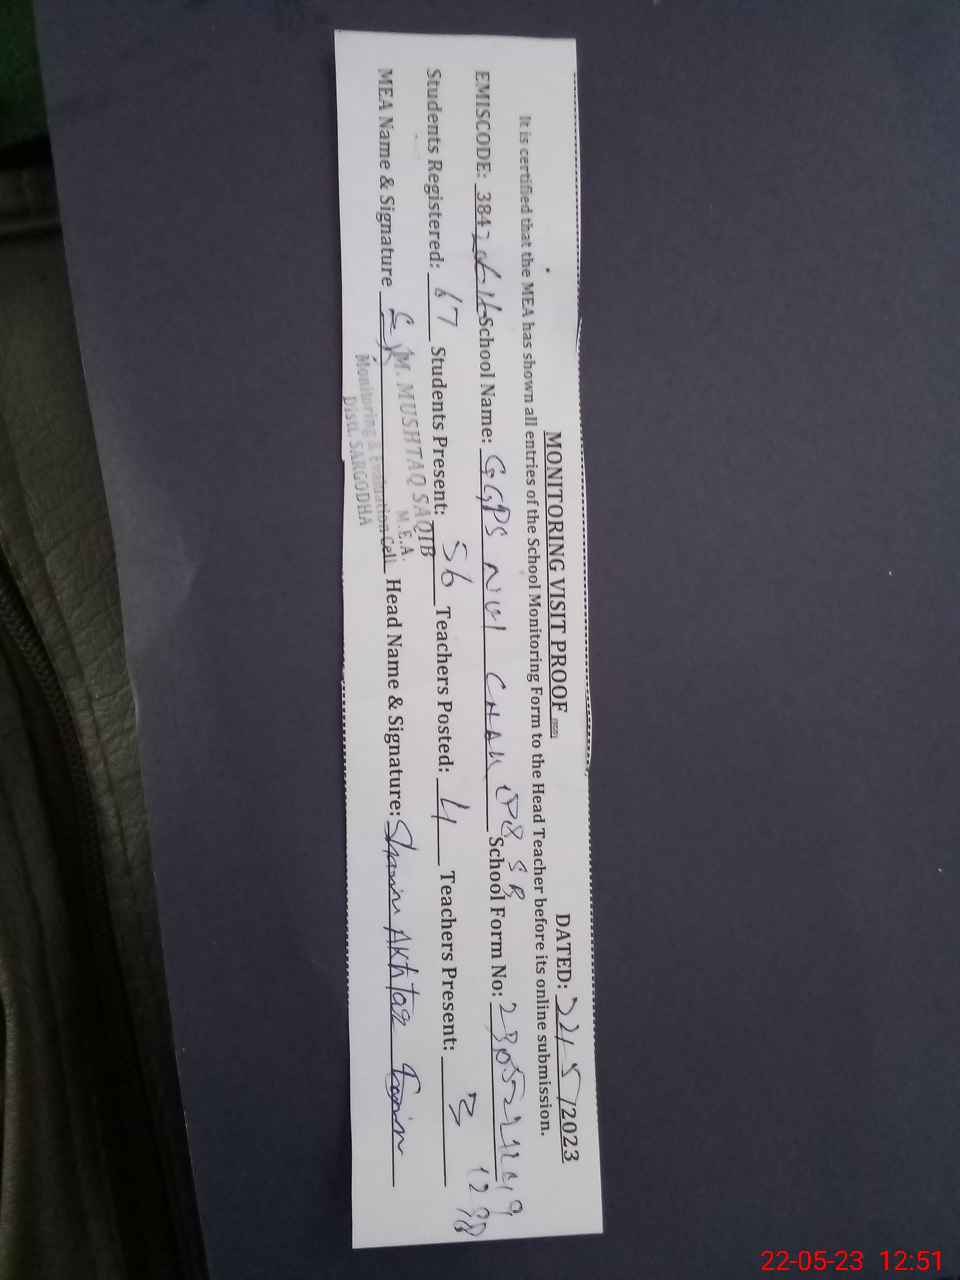 MONITORING VISIT PROOF DATED: 22/5/2023
It is certified that the MEA has shown all entries of the School Monitoring Form to the Head Teacher before its online submission.
EMISCODE: School Name: GGPS NUI CHAK School Form No:
Students Registered: 67 Students Present: 56 Teachers Posted: 4 Teachers Present: 3
MEA Name & Signature Head Name & Signature: Akhtar
M. MUSHTAQ SAQIB
M.E.A.
Monitoring & Evaluation Cell
Distt. SARGODHA
22-05-23 12:51